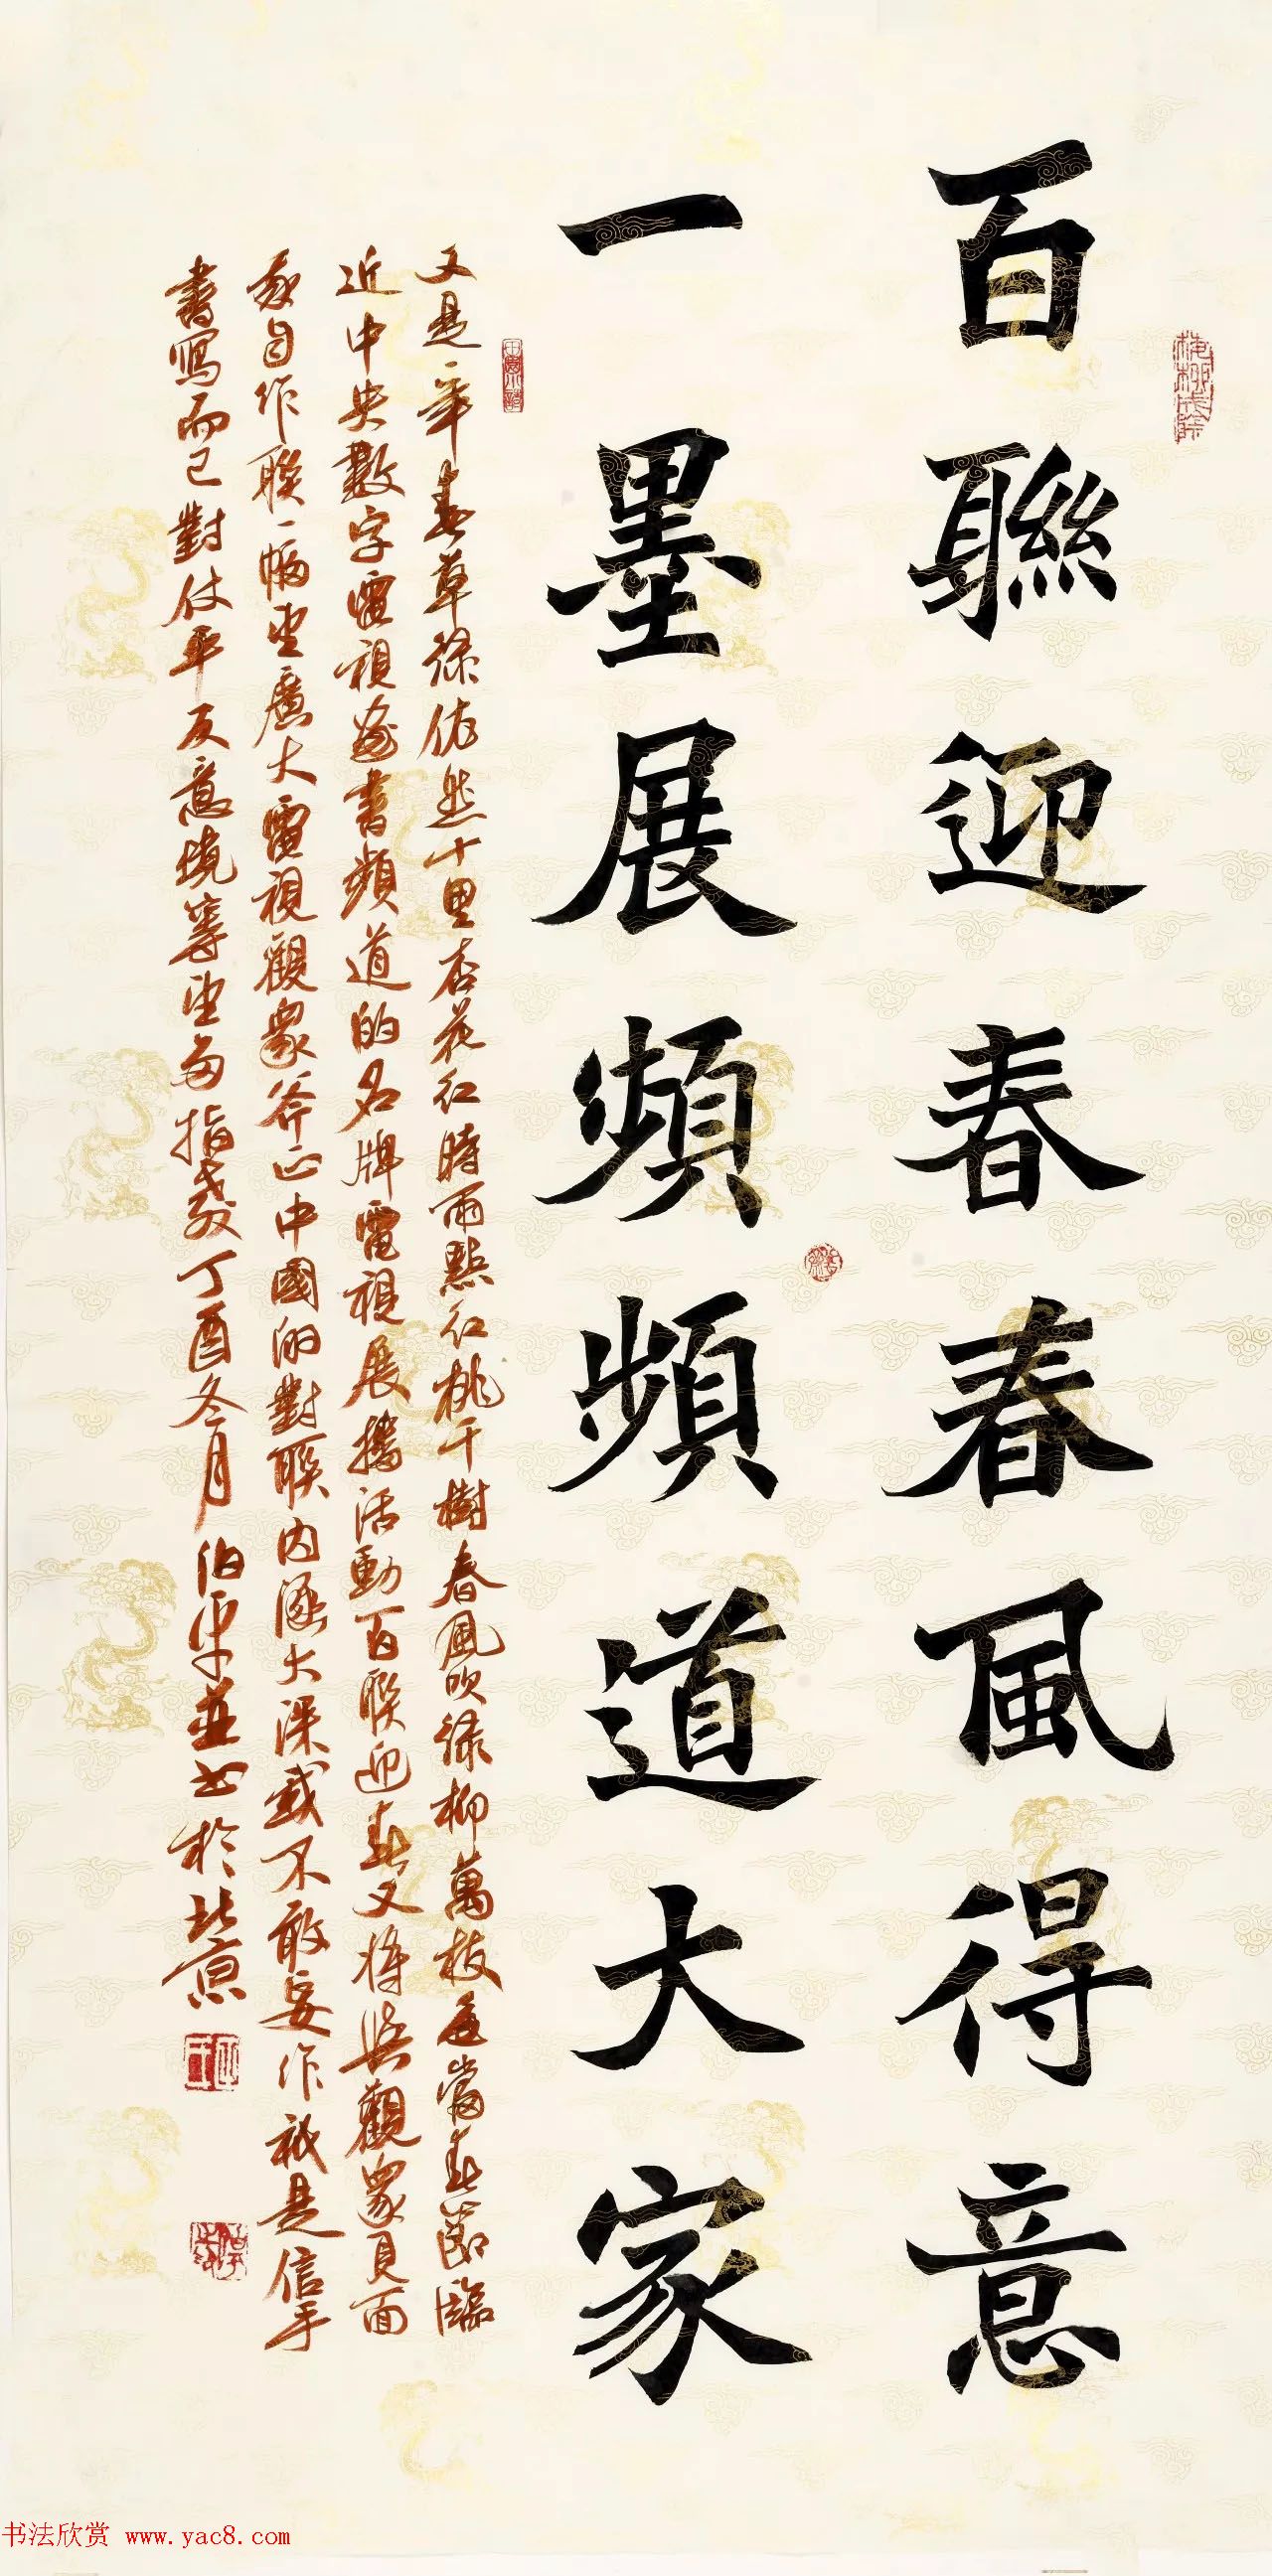 百聯迎春春風得意
一墨展頻頻道大家
又是一年春草綠依然十里杏花紅時雨點紅桃千樹春風吹綠柳萬枝在當春節臨
近中央數字電視書畫頻道的名牌電視展播活動百聯迎春又將與觀眾見面
自作聯一幅望廣大電視觀眾斧正中國的對聯內涵大深我不敢妄作祇是信手
書寫而已對仗平反意境等望多指教丁酉冬月伯平並書於北京
书法欣赏 www.yac8.com